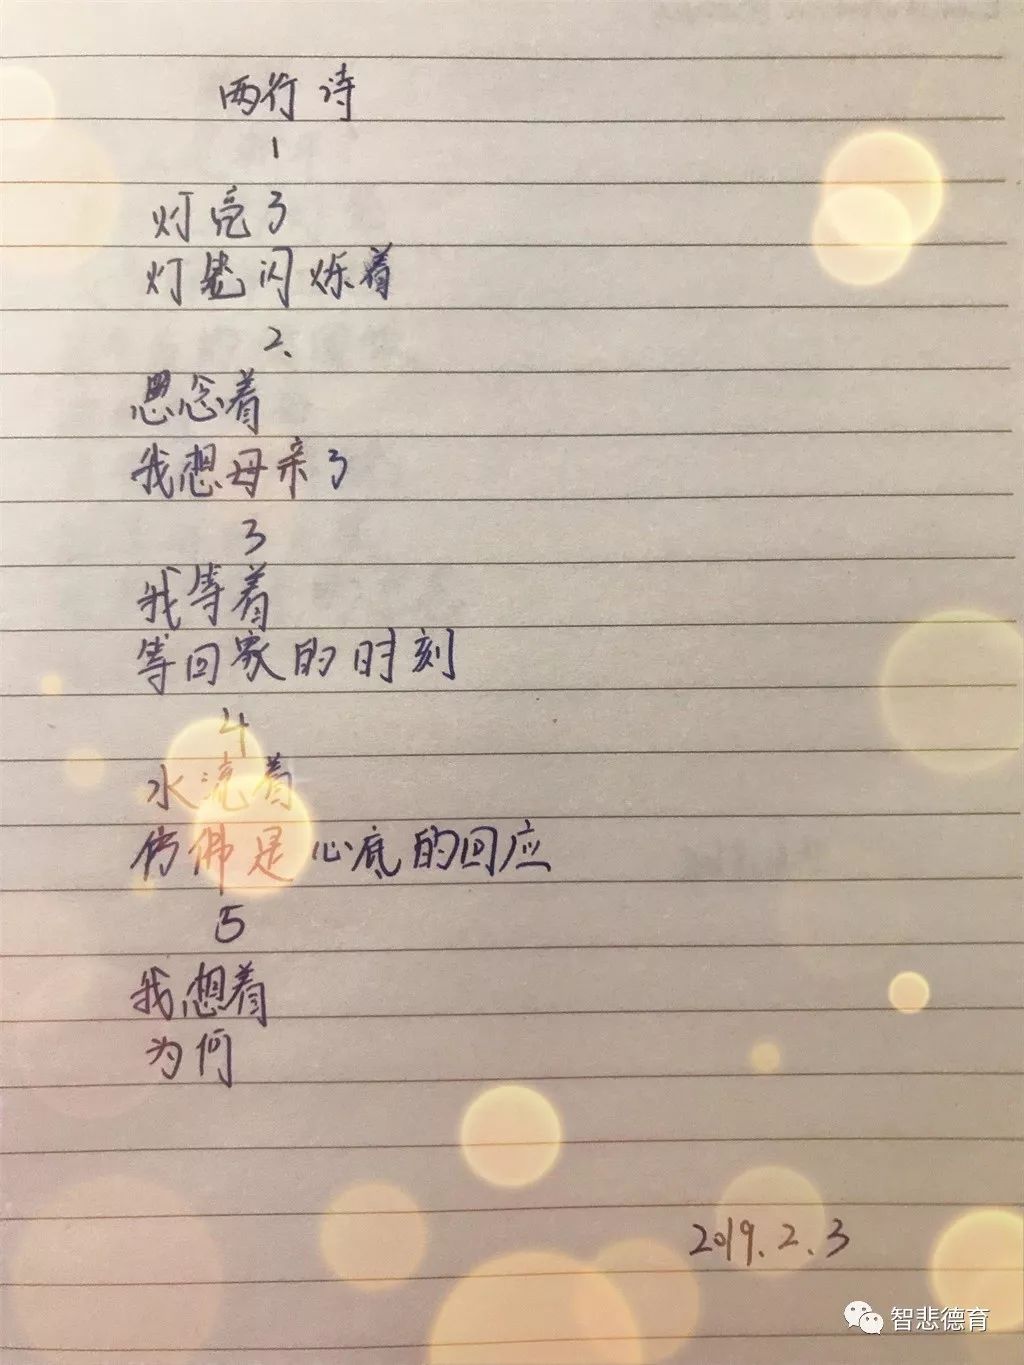 两行诗
1
灯亮了
灯光闪烁着
2、
思念着
我想母亲了
3
我等着
等回家的时刻
4
水流着
仿佛是心底的回应
5
我想着
为何
2019.2.3
智悲德育